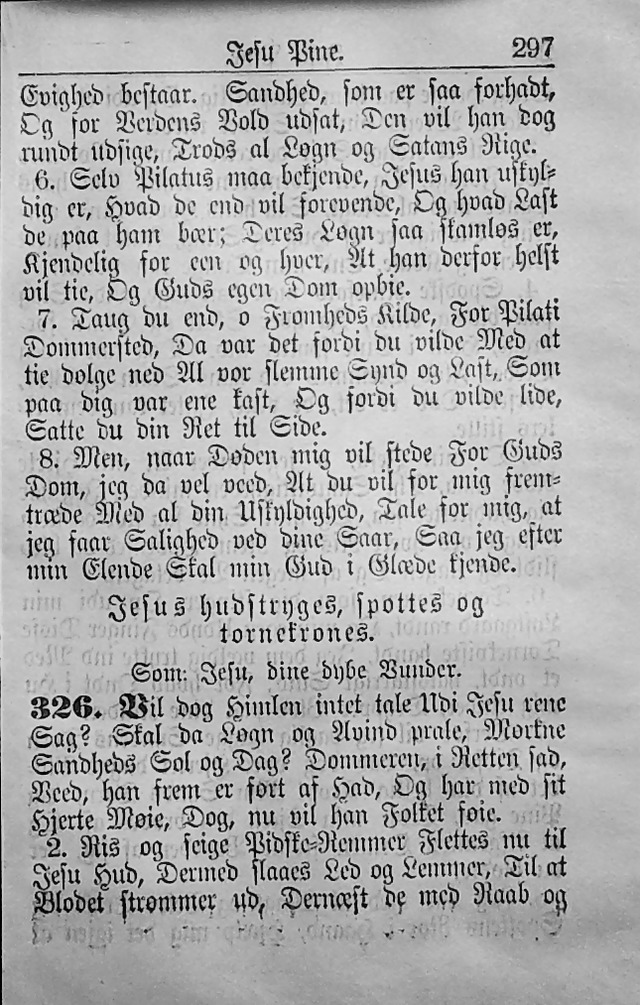 Jesu Pine. 297
Evighed bestaar. Sandhed, som er saa forhadt,
Og for Verdens Vold udsat, Den vil han dog
rundt udsige, Trods al Løgn og Satans Rige.
6. Selv Pilatus maa bekjende, Jesus han uskyl-
dig er, Hvad de end vil forevende, Og hvad Last
de paa ham bær; Deres Løgn saa skamløs er,
Kjendelig for een og hver, At han derfor helst
vil tie, Og Guds egen Dom opbie.
7. Taug du end, o Fromheds Kilde, For Pilati
Dommersted, Da var det fordi du vilde Med at
tie dølge ned Al vor slemme Synd og Last, Som
paa dig var ene kast, Og fordi du vilde lide,
Satte du din Ret til Side.
8. Men, naar Døden mig vil stede For Guds
Dom, jeg da vel veed, At du vil for mig frem-
træde Med al din Uskyldighed, Tale for mig, at
jeg faar Salighed ved dine Saar, Saa jeg efter
min Elende Skal min Gud i Glæde kjende.
Jesus hudstryges, spottes og
tornekrones.
Som: Jesu, dine dybe Vunder.
326. Vil dog Himlen intet tale Udi Jesu rene
Sag? Skal da Løgn og Avind prale, Mørkne
Sandheds Sol og Dag? Dommeren, i Retten sad,
Veed, han frem er ført af Had, Og har med sit
Hjerte Møie, Dog, nu vil han Folket føie.
2. Ris og seige Pidske-Remmer Flettes nu til
Jesu Hud, Dermed slaaes Led og Lemmer, Til at
Blodet strømmer ud, Dernæst de med Raab og